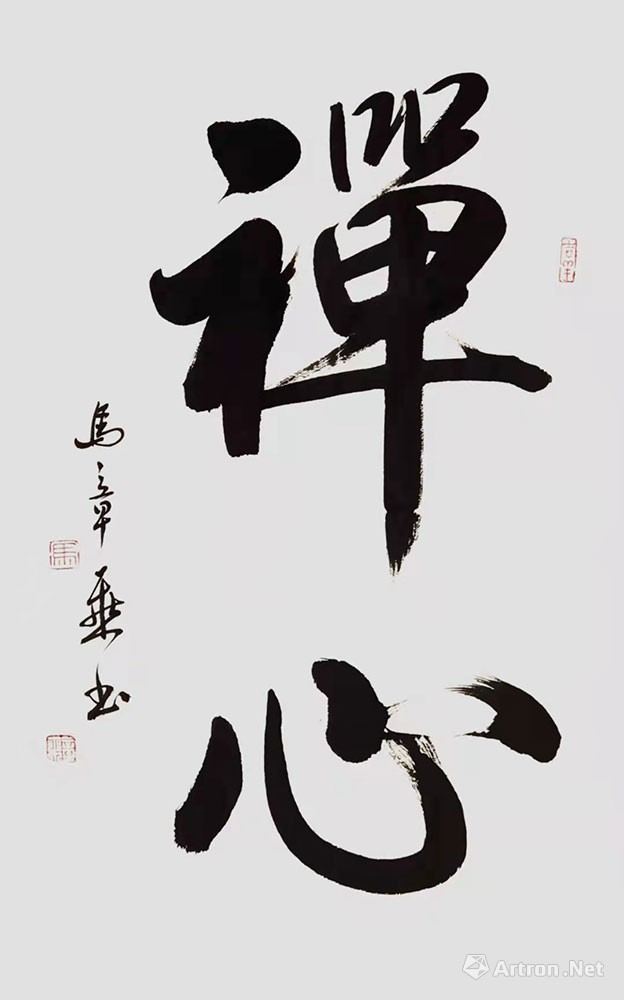 禪心
馬章乘书
馬
Artron.Net